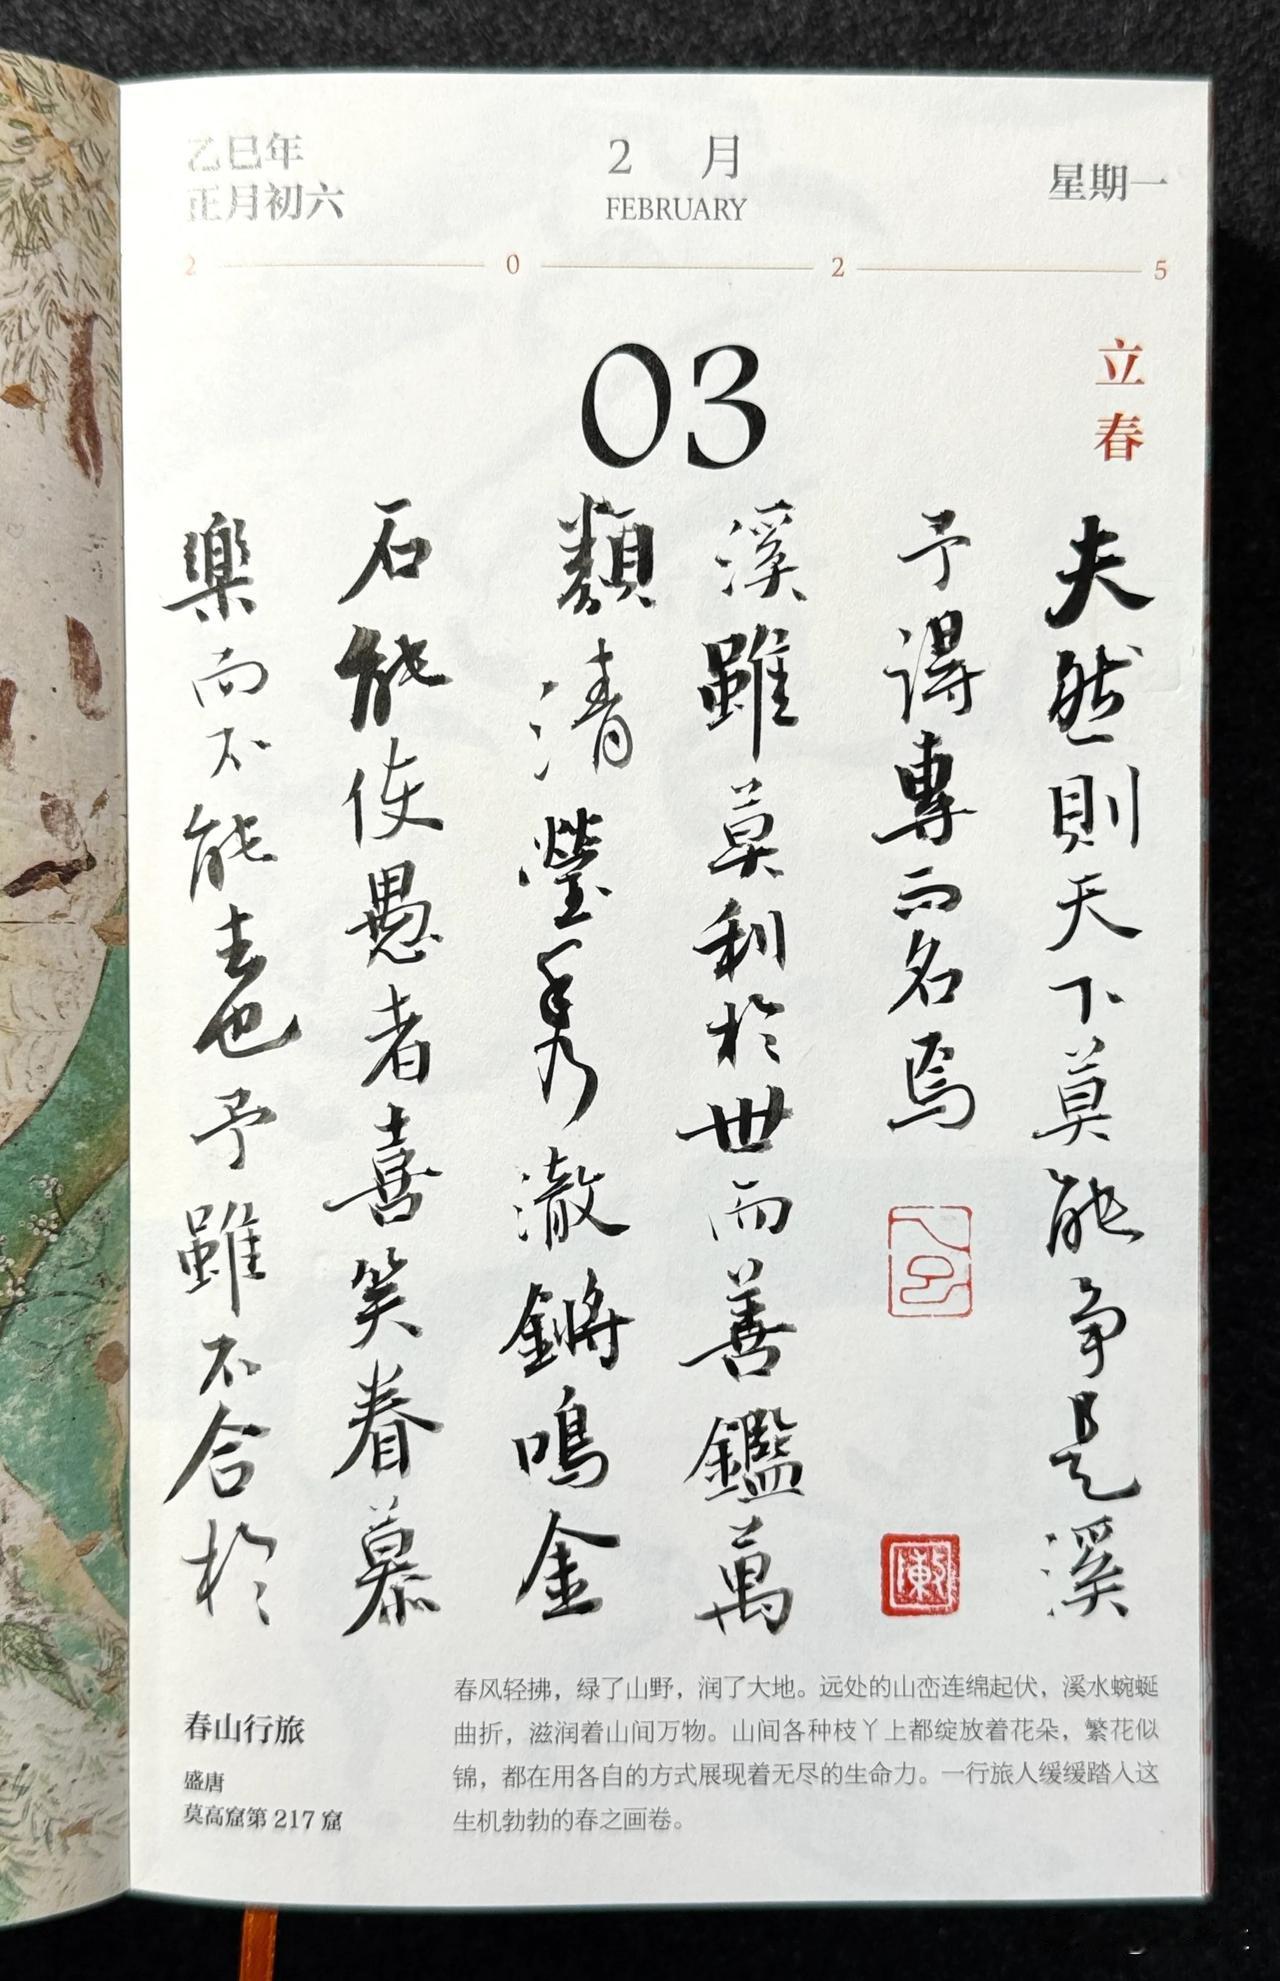 乙巳年
正月初六
2 月
FEBRUARY
星期一
2 0 2 5
03
立春
夫然則天下莫能争是溪
予得專而名焉
溪雖莫利於世而善鑑萬
類清瑩秀澈鏘鳴金
石能使愚者喜笑眷慕
樂而不能去也予雖不合於
春山行旅
盛唐
莫高窟第 217 窟
春风轻拂，绿了山野，润了大地。远处的山峦连绵起伏，溪水蜿蜒
曲折，滋润着山间万物。山间各种枝丫上都绽放着花朵，繁花似
锦，都在用各自的方式展现着无尽的生命力。一行旅人缓缓踏入这
生机勃勃的春之画卷。